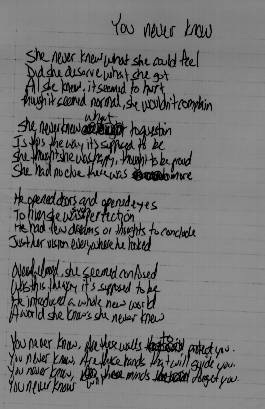 You never know
She never knew what she could feel
Did she deserve what she got
All she knew, it seemed to hurt
though it seemed normal, she wouldn't complain
She never knew what to question
Is this the way it's supposed to be
she thought she was happy, thought to be proud
She had no clue there was more
He opened doors and opened eyes
To him she was perfection
He had few dreams or thoughts to conclude
Just her vision everywhere he looked
she seemed confused
Was this the way it's supposed to be
He introduced a whole new world
A world she knows she never knew
You never know, Are these walls to protect you.
You never know, Are these hands that will guide you.
You never know, these minds forget you.
You never know